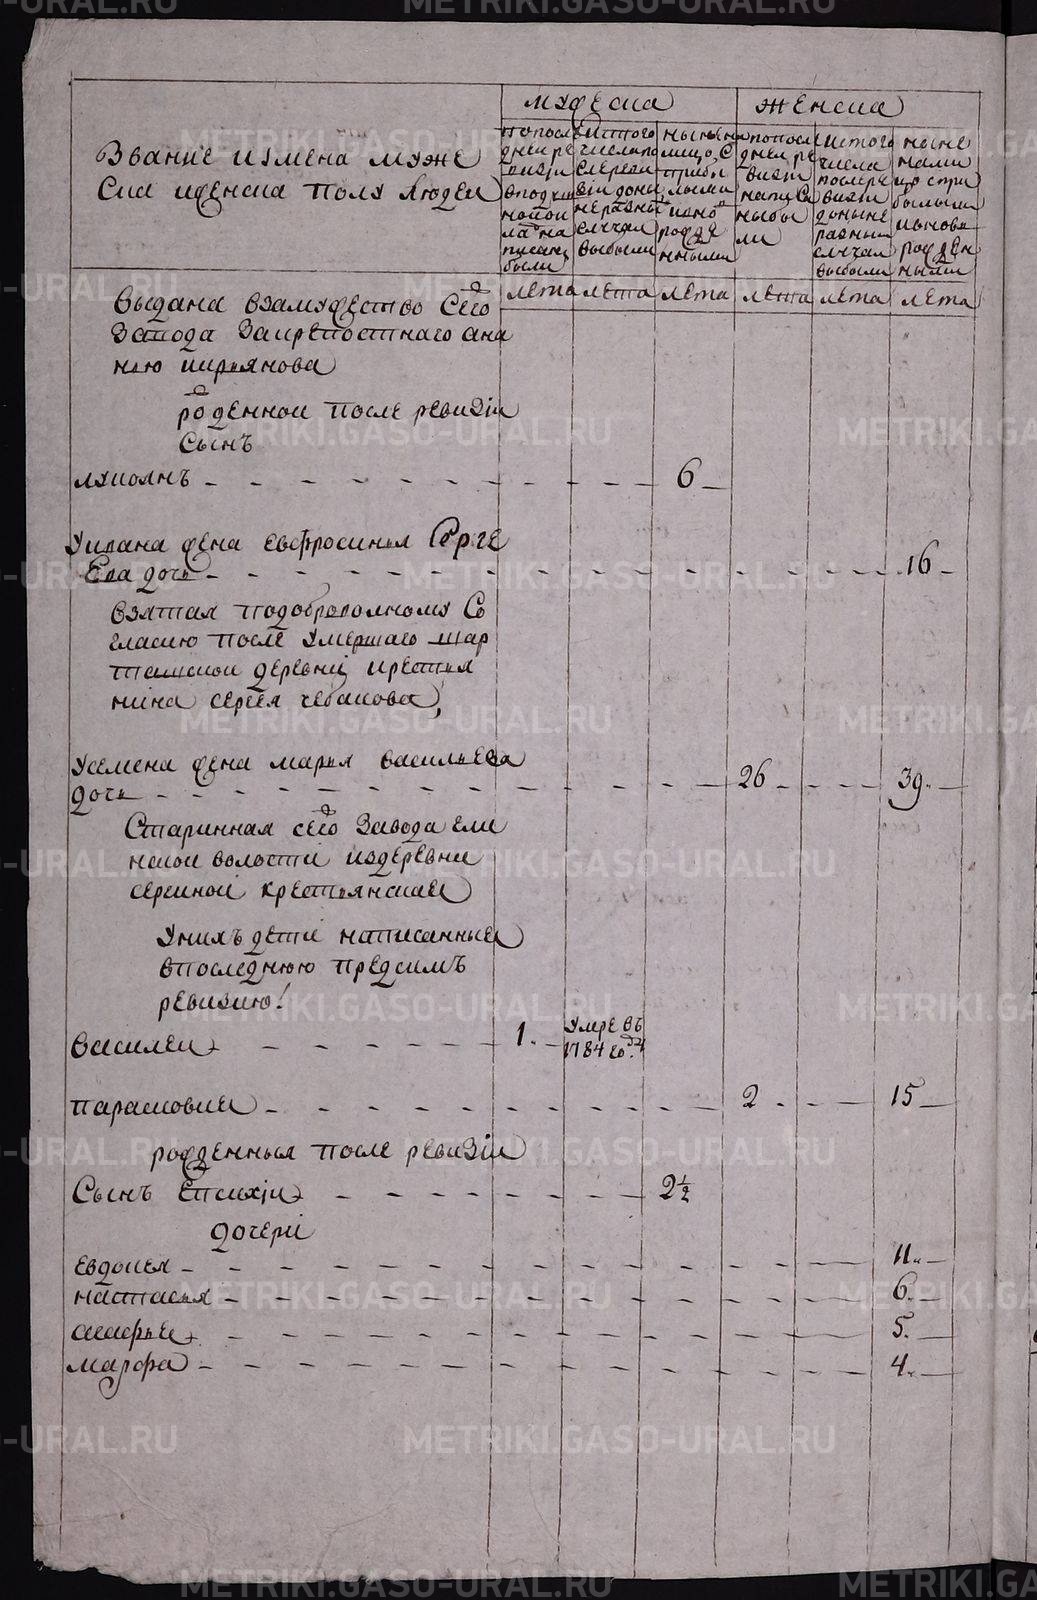 METRIKI.GASO-URAL.RU
мужеска
женска
Звание и имена муже
ска и женска полу людей
по после
дней ре
визии
в подуш
ной
написаны
были
ис того
числа по
сле реви
зіи до ны
не разны
случаи
выбыли
ныне на
лицо с
прибы
лыми
и но
рожде
нными
по после
дней ре
визи
напіса
ны бы
ли
ис того
числа
после ре
визи
до ныне
разныи
случаи
выбыли
ныне
нали
цо с при
былыми
и новы
рожден
ными
лета лета лета лета лета лета
Выдана взамужество сего
завода за крепостнаго ана
нью кирьянова
рожденной после ревизіи
сынъ
лукоянъ 6
У илана жена евфросинья Серге
ева дочь 16
взятая по доброволному со
гласию после умершаго шар
ташской деревни крестья
нина сергея чебакова
У семена жена марья васильева
дочь 26 39
Старинная сего завода елк
нской волости из деревни
сергиной крестьянская
У них дети написанные
в последнюю пред симъ
ревизию
Василей 1 умре въ
1784 году
парасковия 2 15
рожденныя после ревизіи
Сынъ Епсихіи 2 1/2
дочери
евдокея 11
настасья 6
марфа 4
5